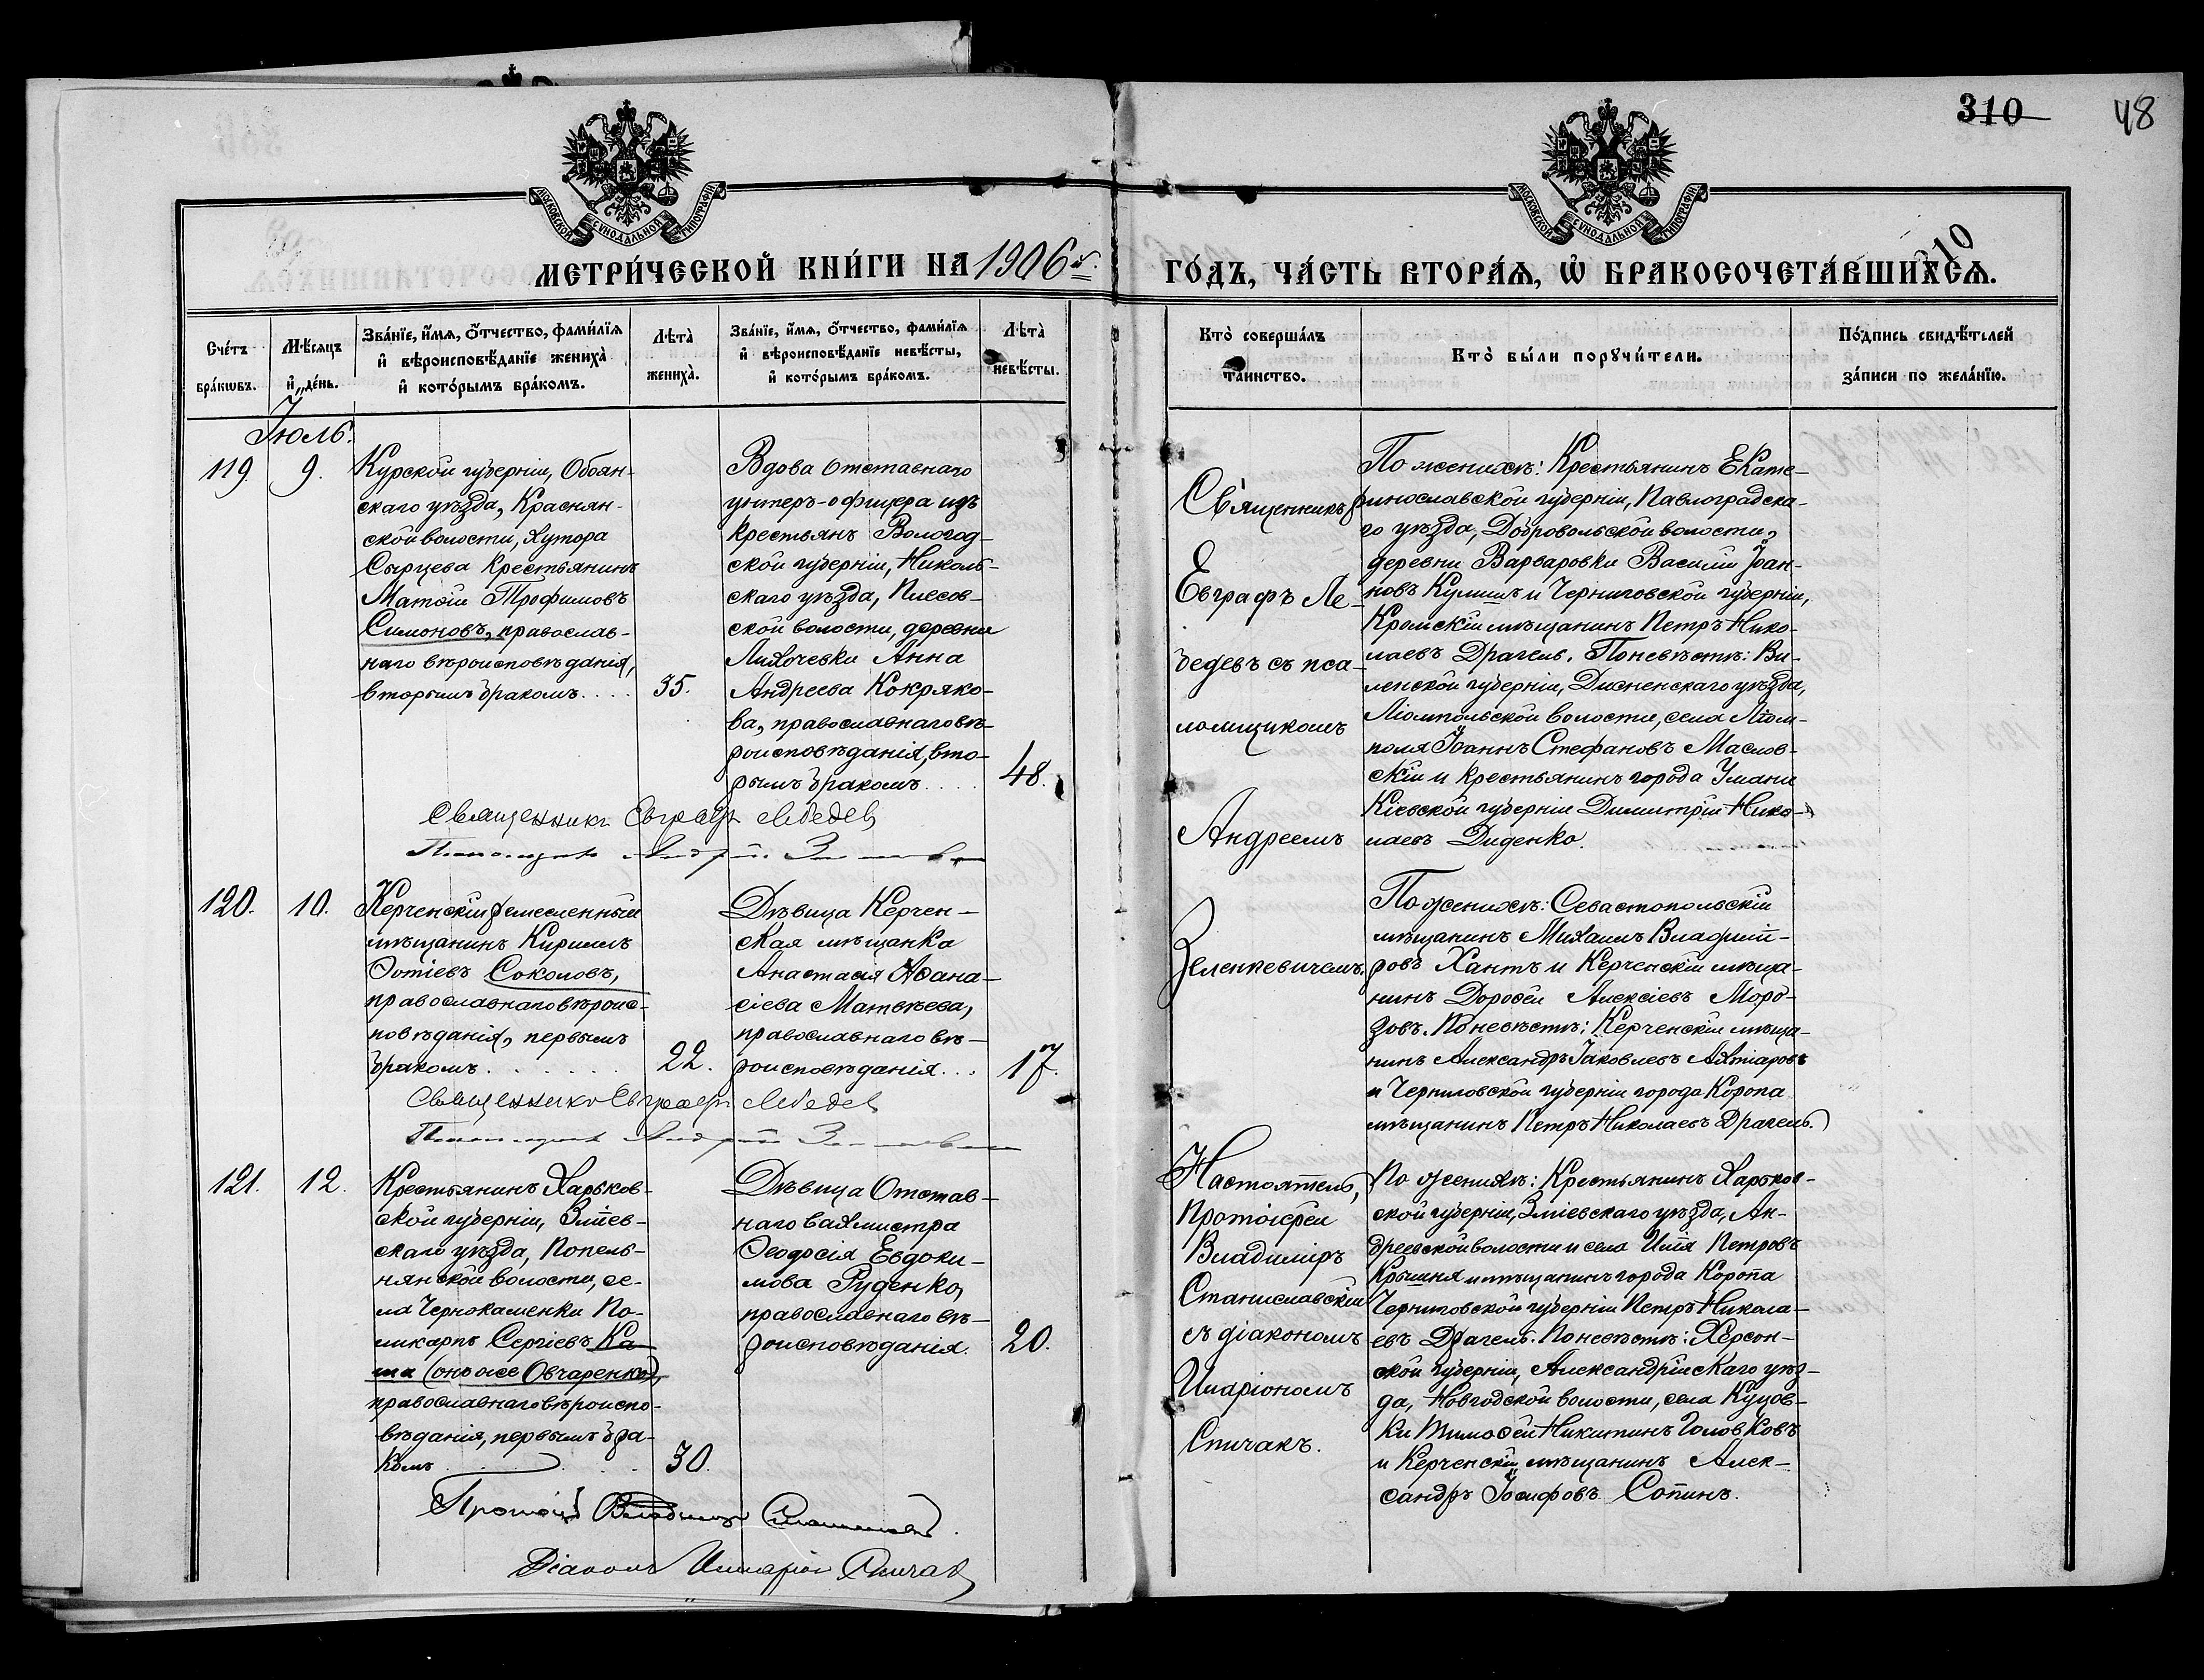 310
48
МОСКОВСКОЙ СѴНОДАЛЬНОЙ ТИПОГРАФІИ
МОСКОВСКОЙ СѴНОДАЛЬНОЙ ТИПОГРАФІИ
310
МЕТРИ́ЧЕСКОЙ КНИ́ГИ НА 1906 й.
ГО́ДЪ, ЧА́СТЬ ВТОРА́Ѧ, Ѡ҆ БРАКОСОЧЕТА́ВШИХСѦ.
Сче́тъ бра́кѡвъ.
Мѣ́сѧцъ и҆ де́нь.
Зва́нїе, и҆́мѧ, ѻ҆́тчество, фами́лїѧ
и҆ вѣроисповѣ́данїе жениха̀
и҆ кото́рымъ бра́комъ.
Лѣта̀
жениха̀.
Зва́нїе, и҆́мѧ, ѻ҆́тчество, фами́лїѧ
и҆ вѣроисповѣ́данїе невѣ́сты,
и҆ кото́рымъ бра́комъ.
Лѣта̀
невѣ́сты.
Кто̀ соверша́лъ
та́инство.
Кто̀ бы́ли порꙋчи́тели.
По́дпись свидѣ́телей
за́писи по жела́нїю.
Іюль.
119.
9.
Курской губерніи, Обоян-
скаго уѣзда, Краснян-
ской волости, хутора
Сырцева крестьянинъ
Матѳій Трофимовъ
Симоновъ, православ-
наго вѣроисповѣданія,
вторымъ бракомъ....
35.
Вдова отставнаго
унтеръ-офицера изъ
крестьянъ Вологод-
ской губерніи, Николь-
скаго уѣзда, Плесов-
ской волости, деревни
Лихочевки Анна
Андреева Кокряко-
ва, православнаго вѣ-
роисповѣданія, вто-
рымъ бракомъ....
48.
Священникъ Евграфъ Лебедев
Псаломщикъ Андрей
Священникъ
Евграфъ Ле-
бедевъ съ пса-
ломщикомъ
Андреемъ
Зеленкевичемъ.
По женихѣ: Крестьянинъ Екате-
ринославской губерніи, Павлоградска-
го уѣзда, Добровольской волости,
деревни Варваровки Василій Іоан-
новъ Кулишъ и Черниговской губерніи,
Кромскій мѣщанинъ Петръ Нико-
лаевъ Драгель. По невѣстѣ: Ви-
ленской губерніи, Дисненскаго уѣзда,
Ліомпольской волости, села Ліом-
поля Іоаннъ Стефановъ Маслов-
скій и крестьянинъ города Умани
Кіевской губерніи Димитрій Нико-
лаевъ Диденко.
120.
10.
Керченскій ремесленный
мѣщанинъ Кириллъ
Фотіевъ Соколовъ,
православнаго вѣроис-
повѣданія, первымъ
бракомъ.......
22.
Дѣвица Керчен-
ская мѣщанка
Анастасія Аѳана-
сіева Матвѣева,
православнаго вѣ-
роисповѣданія...
17.
Священникъ Евграфъ Лебедев
Псаломщикъ Андрей
По женихѣ: Севастопольскій
мѣщанинъ Михаилъ Владимі-
ровъ Хантъ и Керченскій мѣща-
нинъ Дороѳей Алексіевъ Моро-
зовъ. По невѣстѣ: Керченскій мѣща-
нинъ Александръ Іаковлевъ Ахтіаровъ
и Черниговской губерніи города Коропа
мѣщанинъ Петръ Николаевъ Драгель.
121.
12.
Крестьянинъ Харьков-
ской губерніи, Зміев-
скаго уѣзда, Попель-
нянской волости, се-
ла Чернокаменки По-
ликарпъ Сергіевъ Ка-
ша (онъ же Овчаренко),
православнаго вѣроиспо-
вѣданія, первымъ бра-
комъ.....
30.
Дѣвица Отстав-
наго вахмистра
Ѳеодосія Евдоки-
мова Руденко,
православнаго вѣ-
роисповѣданія.
20.
Протоіерей Владиміръ Станиславскій.
Діаконъ Иларіон Спичак
Настоятель,
Протоіерей
Владиміръ
Станиславскій
съ діакономъ
Иларіономъ
Спичакъ.
По женихѣ: Крестьянинъ Харьков-
ской губерніи, Зміевскаго уѣзда, Ан-
дреевской волости и села Илія Петровъ
Крышня и мѣщанинъ города Коропа
Черниговской губерніи Петръ Никола-
евъ Драгель. По невѣстѣ: Херсон-
ской губерніи, Александрійскаго уѣз-
да, Новгодской волости, села Куцов-
ки Тимоѳей Никитинъ Головковъ
и Керченскій мѣщанинъ Алек-
сандръ Іосифовъ Сопинъ.